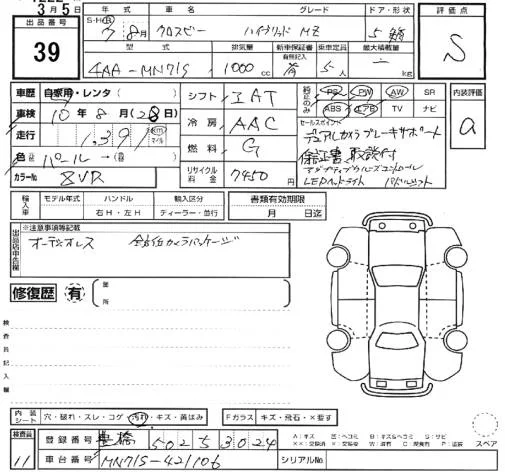 3月5日
出品番号
39
S・H・R 年式 車名 グレード ドア・形状
7年8月 クロスビー ハイブリッド MZ 5
型式 排気量 新車保証書 有無記入 乗車定員 最大積載量
4AA-MN71S 1000cc 有 5人 kg
評価点
S
車歴 自家用・レンタ
車検 10年8月(28日)
走行 1,391 km マイル
色 パール→(替)
カラー№ ZVR
シフト IAT
冷房 AAC
燃料 G
リサイクル料金 7450
純正のみ PS PW AW SR
ABS エアB TV ナビ
内装評価
a
セールスポイント
デュアルカメラブレーキサポート
保証書 取説付
アダプティブクルーズコントロール
LEDヘッドライト パドルシフト
輸入車 モデル年式 ハンドル 輸入区分 書類有効期限
年 右H・左H ディーラー・並行 月 日迄
出品店申告欄
※注意事項等記載
オーディオレス 全方位カメラパッケージ
修復歴 有 箇所
検査員記入欄
内装シート 穴・破れ・スレ・コゲ・汚れ・キズ・黄ばみ Fガラス キズ・飛石・×要す
検査員
11
登録番号 豊橋 502 5 3024
車台番号 MN71S-421106
シリアル№
スペア